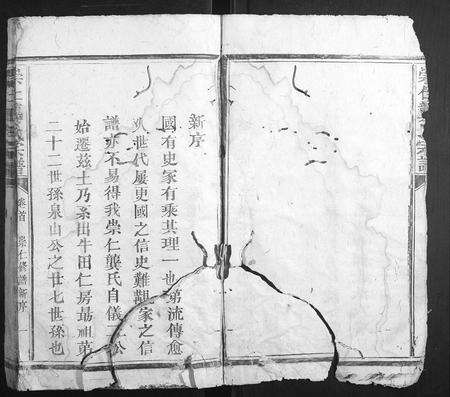 新序
國有史家有乘其理一也第流傳愈
久世代屢更國之信史難觀家之信
譜亦不易得我崇仁龔氏自儀
始遷茲土乃系出牛田仁房勗祖第
二十二世孫泉山公之廿七世孫也
卷首 崇仁修譜新序 一
崇仁